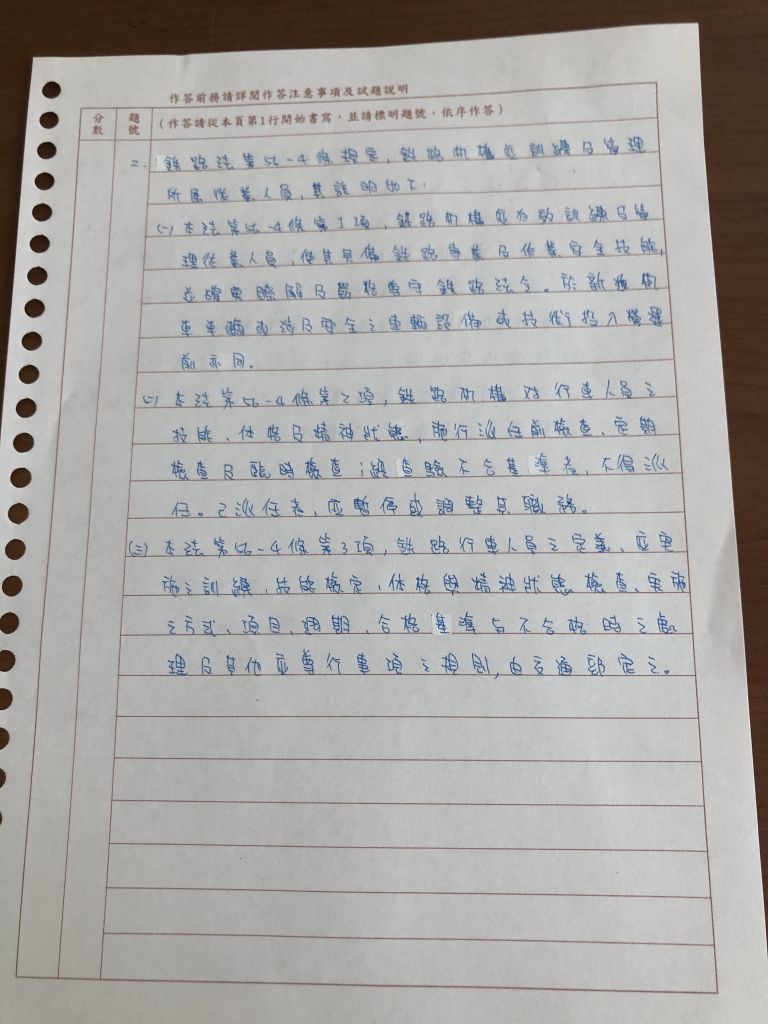 作答前務請詳閱作答注意事項及試題說明
分數 題號 (作答請從本頁第1行開始書寫，並請標明題號，依序作答)
二、 鐵路法第56-4條規定，鐵路機構應訓練及管理
所屬從業人員，其說明如下：
(一) 本法第56-4條第1項，鐵路機構應有效訓練及管
理從業人員，使其具備鐵路專業及作業安全技能，
並確實瞭解及嚴格遵守鐵路法令。於新進機
車車輛或涉及安全之車輛設備或技術投入營運
前亦同。
(二) 本法第56-4條第2項，鐵路機構對行車人員之
技能、体格及精神狀態，施行派任前檢查、定期
檢查及臨時檢查；經查驗不合基準者，不得派
任。已派任者，應暫停或調整其職務。
(三) 本法第56-4條第3項，鐵路行車人員之定義、應实
施之訓練、技能檢定、体格與精神狀態檢查、実施
之方式、項目、週期、合格基準与不合格時之處
理及其他應遵行事項之規則，由交通部定之。